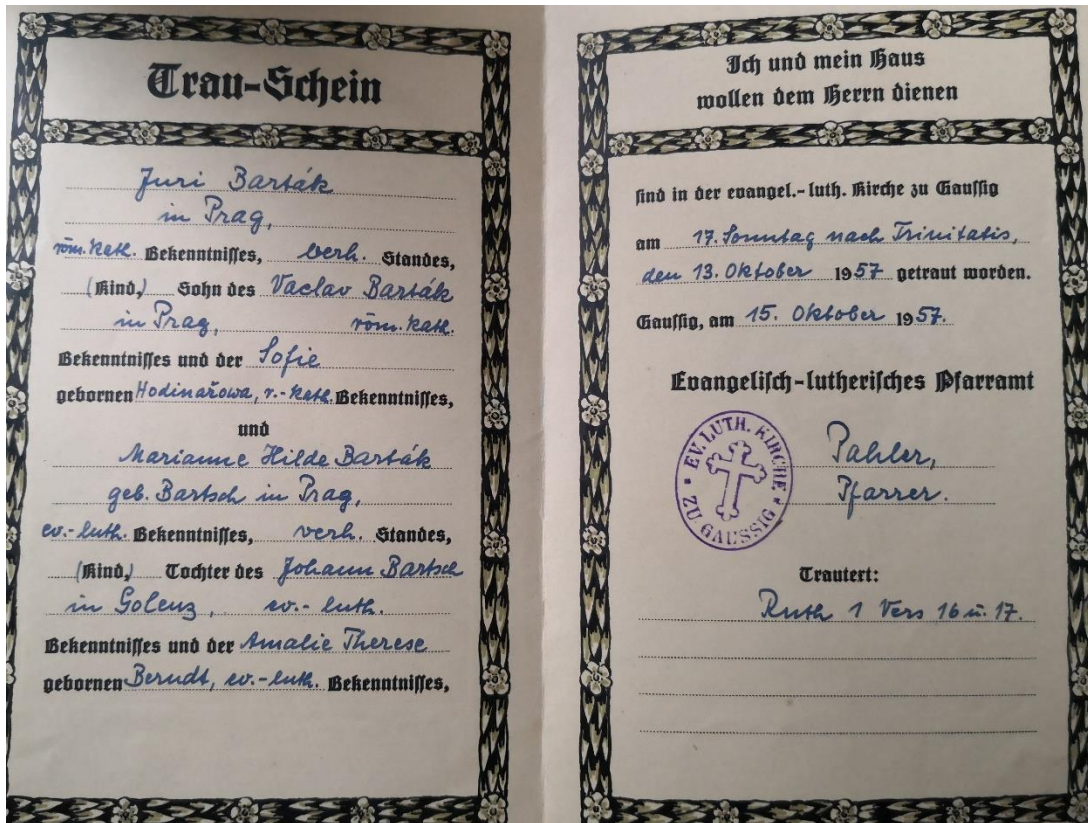 Trau-Schein
Juri Barták
in Prag,
röm. kath. Bekenntnisses, verh. Standes,
(Kind,) Sohn des Vaclav Barták
in Prag, röm. kath.
Bekenntnisses und der Sofie
gebornen Hodinařowa, r.-kath. Bekenntnisses,
und
Marianne Hilde Barták
geb. Bartsch in Prag,
ev.-luth. Bekenntnisses, verh. Standes,
(Kind,) Tochter des Johann Bartsch
in Golenz, ev.-luth.
Bekenntnisses und der Amalie Therese
gebornen Berndt, ev.-luth. Bekenntnisses,
Ich und mein Haus
wollen dem Herrn dienen
sind in der evangel.-luth. Kirche zu Gaussig
am 17. Sonntag nach Trinitatis,
den 13. Oktober 1957 getraut worden.
Gaussig, am 15. Oktober 1957.
Evangelisch-lutherisches Pfarramt
EV. LUTH. KIRCHE
ZU GAUSSIG
Pahler,
Pfarrer.
Trautext:
Ruth 1 Vers 16 u. 17.